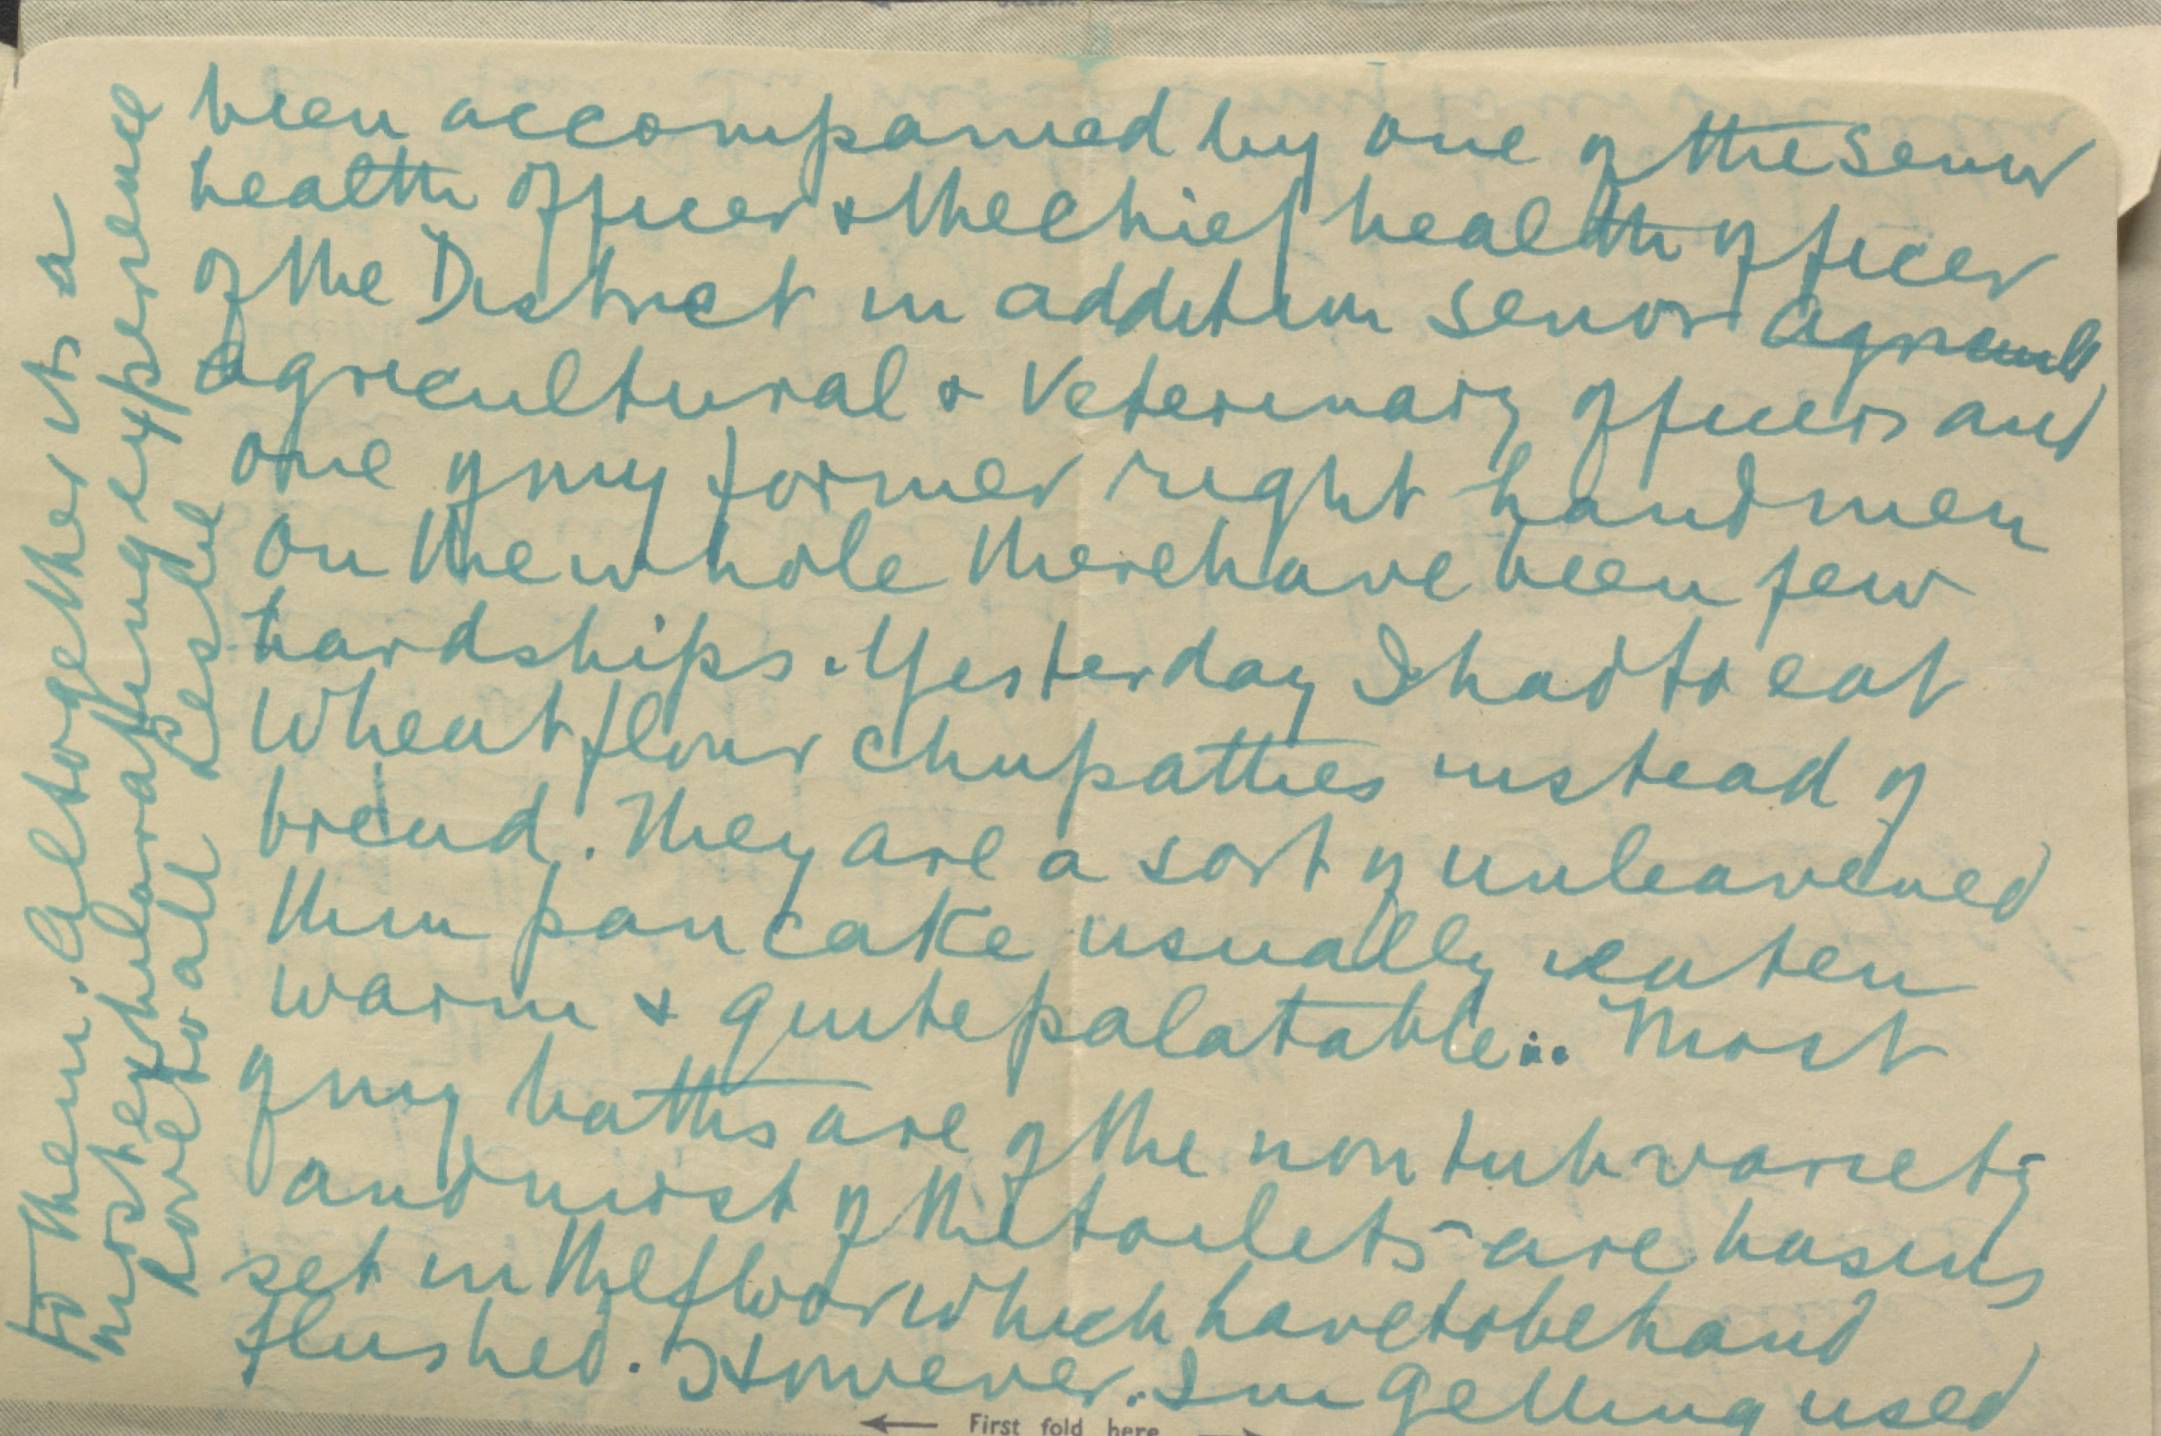 been accompanied by one of the senior
health officer & the chief health officer
of the District in addition senior Agricult
agricultural & Veterinary officers and
one of my former right hand men
On the whole there have been few
hardships. Yesterday I had to eat
wheat flour chupatties instead of
bread. They are a sort of unleavened
thin pancake usually eaten
warm & quite palatable... Most
of my baths are of the non tub variety
and most of the toilets are basins
set in the floor which have to be hand
flushed. However.. I'm getting used
to them. Altogether its a
most exhilarating experience
Love to all Leslie
First fold here